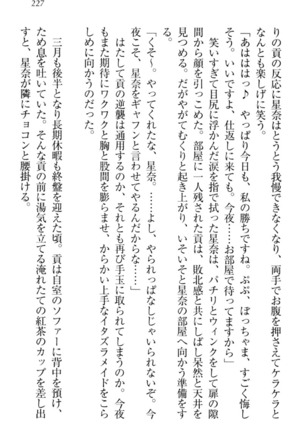 227
りの貢の反応に星奈はとうとう我慢できなくなり、両手でお腹を押さえてケラケラと
なんとも楽しげに笑う。
「あはははっ♪ やっぱり今日も、私の勝ちですね。ぶぶ、ぼっちゃま、すごく悔し
そう。いいですよ、仕返しに来ても。今夜……お部屋で待ってますから」
笑いすぎて目尻に浮かんだ涙を指で拭った星奈は、パチリとウィンクをして扉の隙
間から顔を引っこめた。部屋に一人残された貢は、敗北感と共にしばし呆然と天井を
見つめる。だがやがてむくりと起き上がり、いそいそと星奈の部屋へ向かう準備をす
る。
「くそ～。やってくれたな、星奈。……よし、やられっぱなしじゃいられないぞ。今
夜こそ、星奈をギャフンと言わせてやるんだからな……!」
はたして貢の逆襲は通用するのか、それとも再び手玉に取られてしまうのか。今夜
もまた期待にワクワクと胸と股間を膨らませ、どこからか上手なイタズラメイドをこら
しめに向かうのだった。
三月も後半となり長期休暇も終盤を迎えた頃。貢は自室のソファーに背中を預け、
ため息を吐いていた。そんな貢の前に湯気を立てる淹れたての紅茶のカップを差し出
すと、星奈が隣にチョコンと腰掛ける。